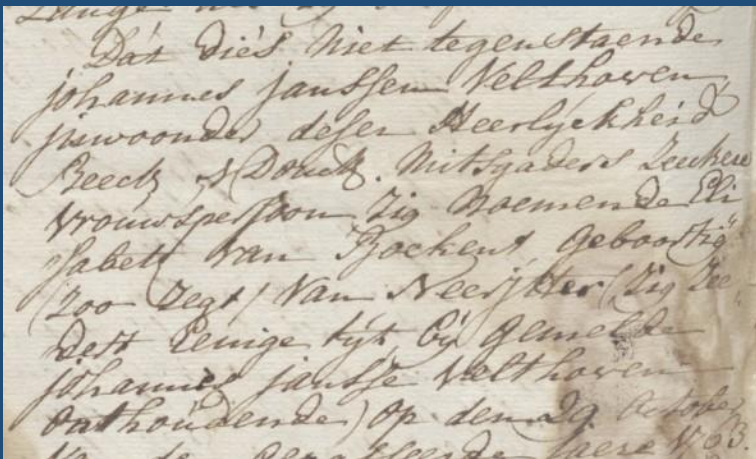 Dat dies niet tegenstaende
johannes janssen Velthoven
inwoonder deser Heerlyckheid
Beeck & Donck. mitsgaders Zeekere
vrouwspersoon Zig noemende Eli
sabeth van Bockent, geboortig
(zoo Zegt) van Neeritter (zig Zee
dert Eenige tyt by gemelde
johannes jansse Velthoven
onthoudende) op den 29 October
Van de gepasseerde Jaere 1763